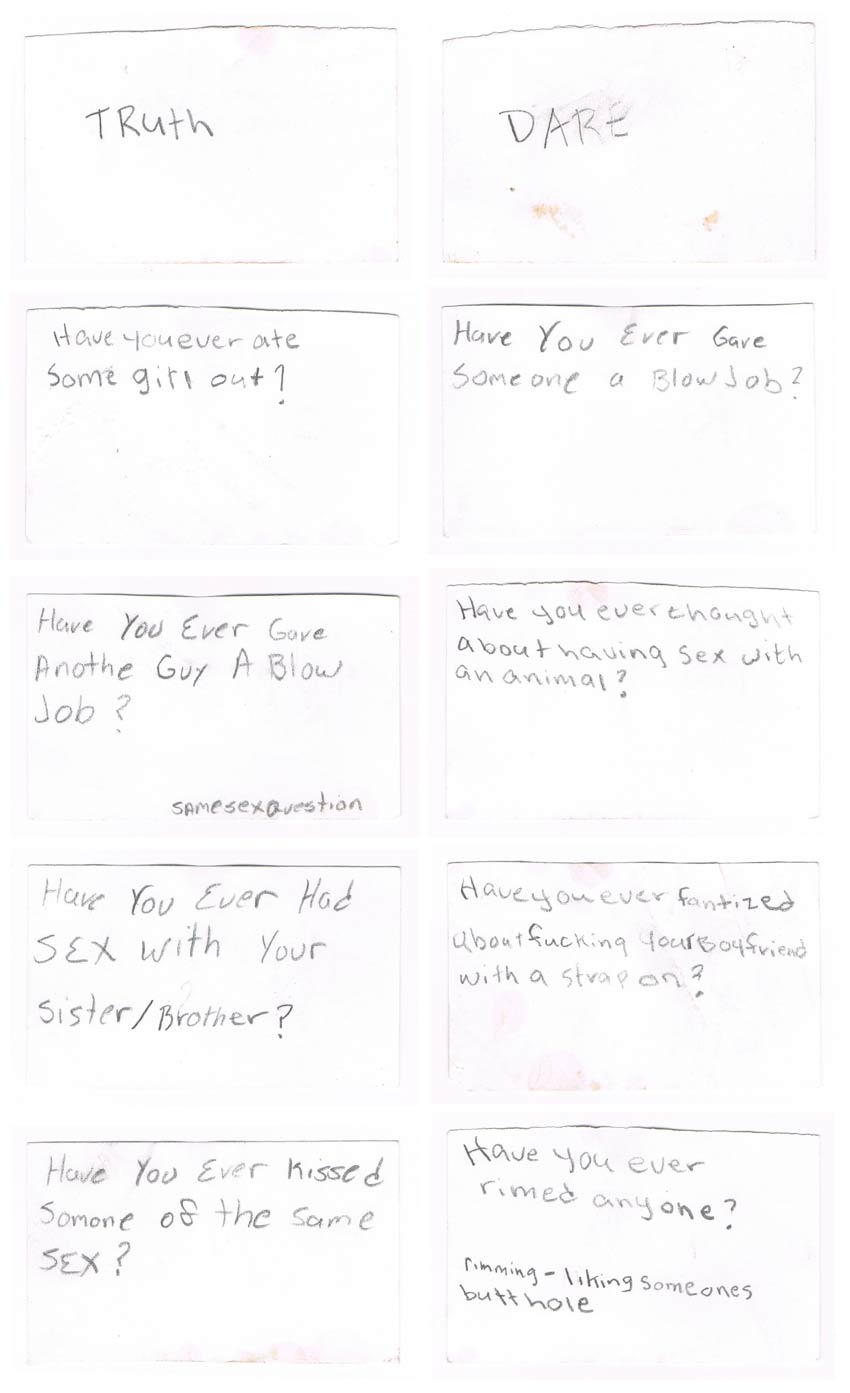 TRuth
DARE
Have you ever ate
Some girl out?
Have You Ever Gave
Someone a Blow Job?
Have You Ever Gave
Anothe Guy A Blow
Job?
samesexquestion
Have you ever thought
about having sex with
an animal?
Have You Ever Had
SEX with Your
Sister/Brother?
Have you ever fantized
about fucking your Boyfriend
with a strap on?
Have You Ever Kissed
Somone of the same
SEX?
Have you ever
rimed anyone?
rimming - liking someones
butt hole